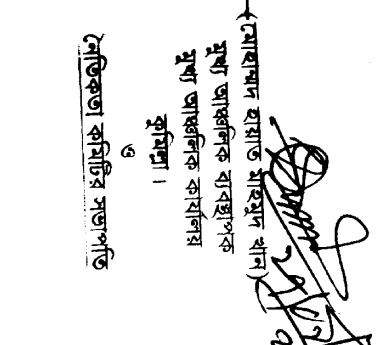 (মোহাম্মদ হায়াত মাহমুদ খান)
মুখ্য আঞ্চলিক ব্যবস্থাপক
মুখ্য আঞ্চলিক কার্যালয়
কুমিল্লা।
ও
নৈতিকতা কমিটির সভাপতি